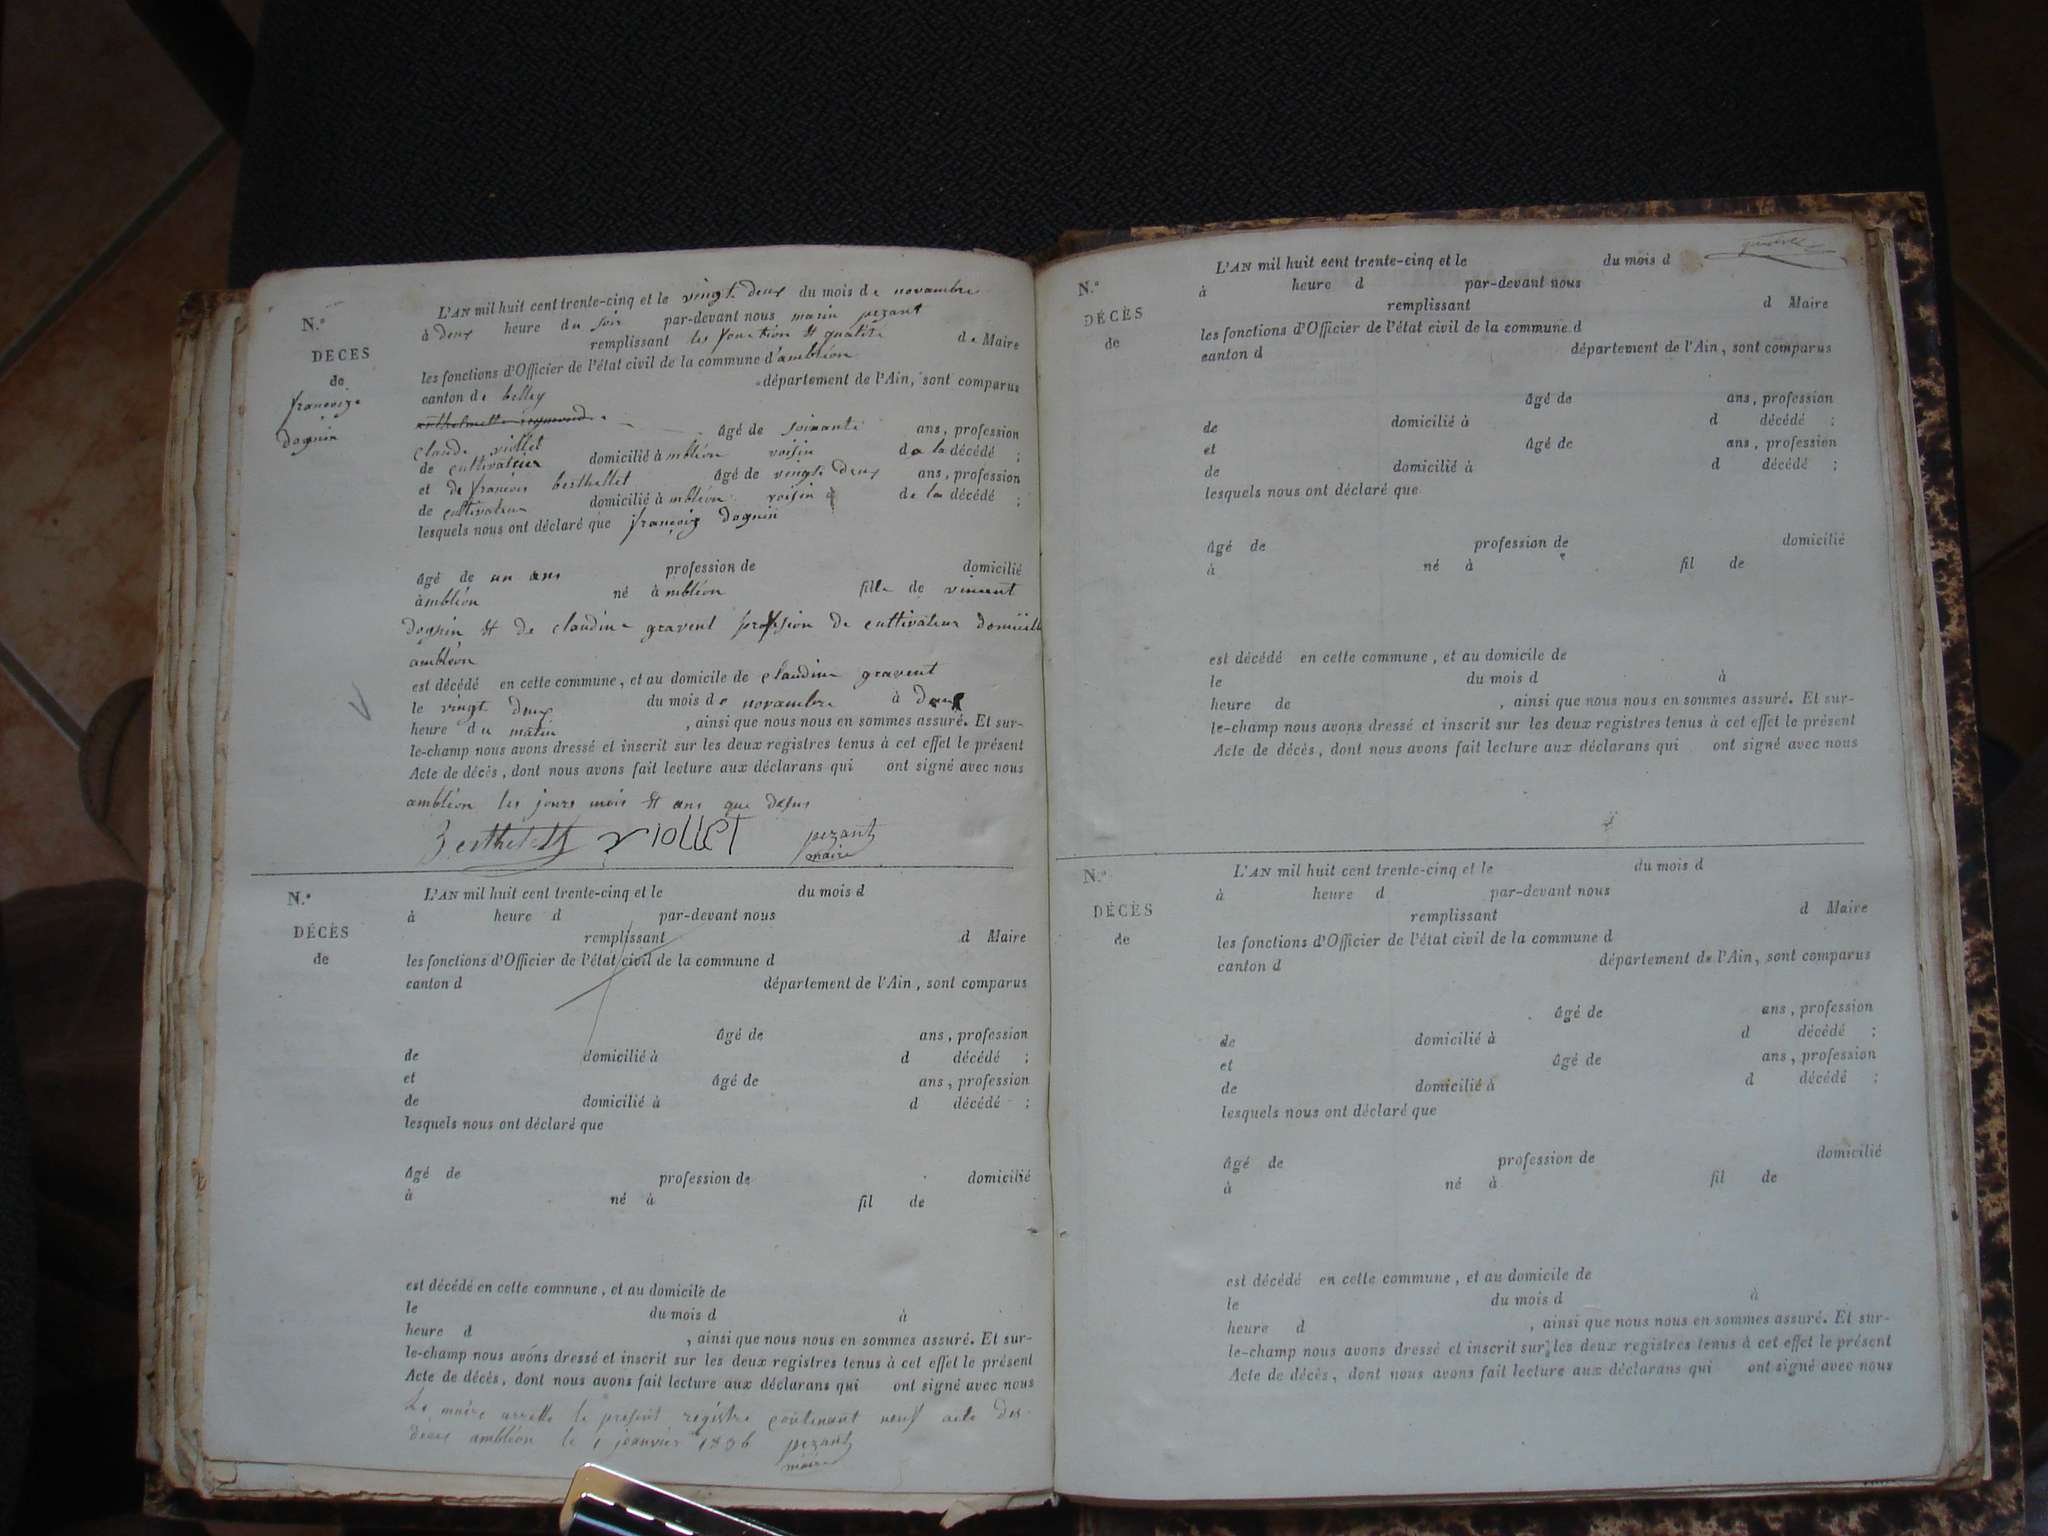 N.°
DÉCÈS
de
françoize
dognin
L'AN mil huit cent trente-cinq et le vingt deux du mois de novambre
à deux heure du soir par-devant nous marin pezant
remplissant les fonction et qualité de Maire
les fonctions d'Officier de l'état civil de la commune d'ambléon
canton de belley département de l'Ain, sont comparus
claude viollet âgé de soixante ans, profession
de cultivateur domicilié à mbléon voisin de la décédé ;
et de francois berthellet âgé de vingt deux ans, profession
de cultivateur domicilié à mbléon voisin de la décédé ;
lesquels nous ont déclaré que françoiz dognin
âgé de un ans profession de domicilié
àmbléon né à mbléon fille de vincent
dognin et de claudine gravent profession de cultivateur domicille
ambléon
est décédé en cette commune, et au domicile de claudine gravent
le vingt deux du mois de novambre à deux
heure du matin , ainsi que nous nous en sommes assuré. Et sur-
le-champ nous avons dressé et inscrit sur les deux registres tenus à cet effet le présent
Acte de décès, dont nous avons fait lecture aux déclarans qui ont signé avec nous
ambléon les jours mois et ans que desus
Berthelett viollet pezant
maire
N.°
DÉCÈS
de
L'AN mil huit cent trente-cinq et le du mois d
à heure d par-devant nous
remplissant d Maire
les fonctions d'Officier de l'état civil de la commune d
canton d département de l'Ain, sont comparus
âgé de ans, profession
de domicilié à d décédé ;
et âgé de ans, profession
de domicilié à d décédé ;
lesquels nous ont déclaré que
âgé de profession de domicilié
à né à fil de
est décédé en cette commune, et au domicile de
le du mois d à
heure d , ainsi que nous nous en sommes assuré. Et sur-
le-champ nous avons dressé et inscrit sur les deux registres tenus à cet effet le présent
Acte de décès, dont nous avons fait lecture aux déclarans qui ont signé avec nous
Le maire arrette le present registre contenant neuf acte des
deces ambléon le 1 jeanvier 1836 pezant
maire
N.°
DÉCÈS
de
L'AN mil huit cent trente-cinq et le du mois d
à heure d par-devant nous
remplissant d Maire
les fonctions d'Officier de l'état civil de la commune d
canton d département de l'Ain, sont comparus
âgé de ans, profession
de domicilié à d décédé ;
et âgé de ans, profession
de domicilié à d décédé ;
lesquels nous ont déclaré que
âgé de profession de domicilié
à né à fil de
est décédé en cette commune, et au domicile de
le du mois d à
heure de , ainsi que nous nous en sommes assuré. Et sur-
le-champ nous avons dressé et inscrit sur les deux registres tenus à cet effet le présent
Acte de décès, dont nous avons fait lecture aux déclarans qui ont signé avec nous
N.°
DÉCÈS
de
L'AN mil huit cent trente-cinq et le du mois d
à heure d par-devant nous
remplissant d Maire
les fonctions d'Officier de l'état civil de la commune d
canton d département de l'Ain, sont comparus
âgé de ans, profession
de domicilié à d décédé ;
et âgé de ans, profession
de domicilié à d décédé ;
lesquels nous ont déclaré que
âgé de profession de domicilié
à né à fil de
est décédé en cette commune, et au domicile de
le du mois d à
heure d , ainsi que nous nous en sommes assuré. Et sur-
le-champ nous avons dressé et inscrit sur les deux registres tenus à cet effet le présent
Acte de décès, dont nous avons fait lecture aux déclarans qui ont signé avec nous